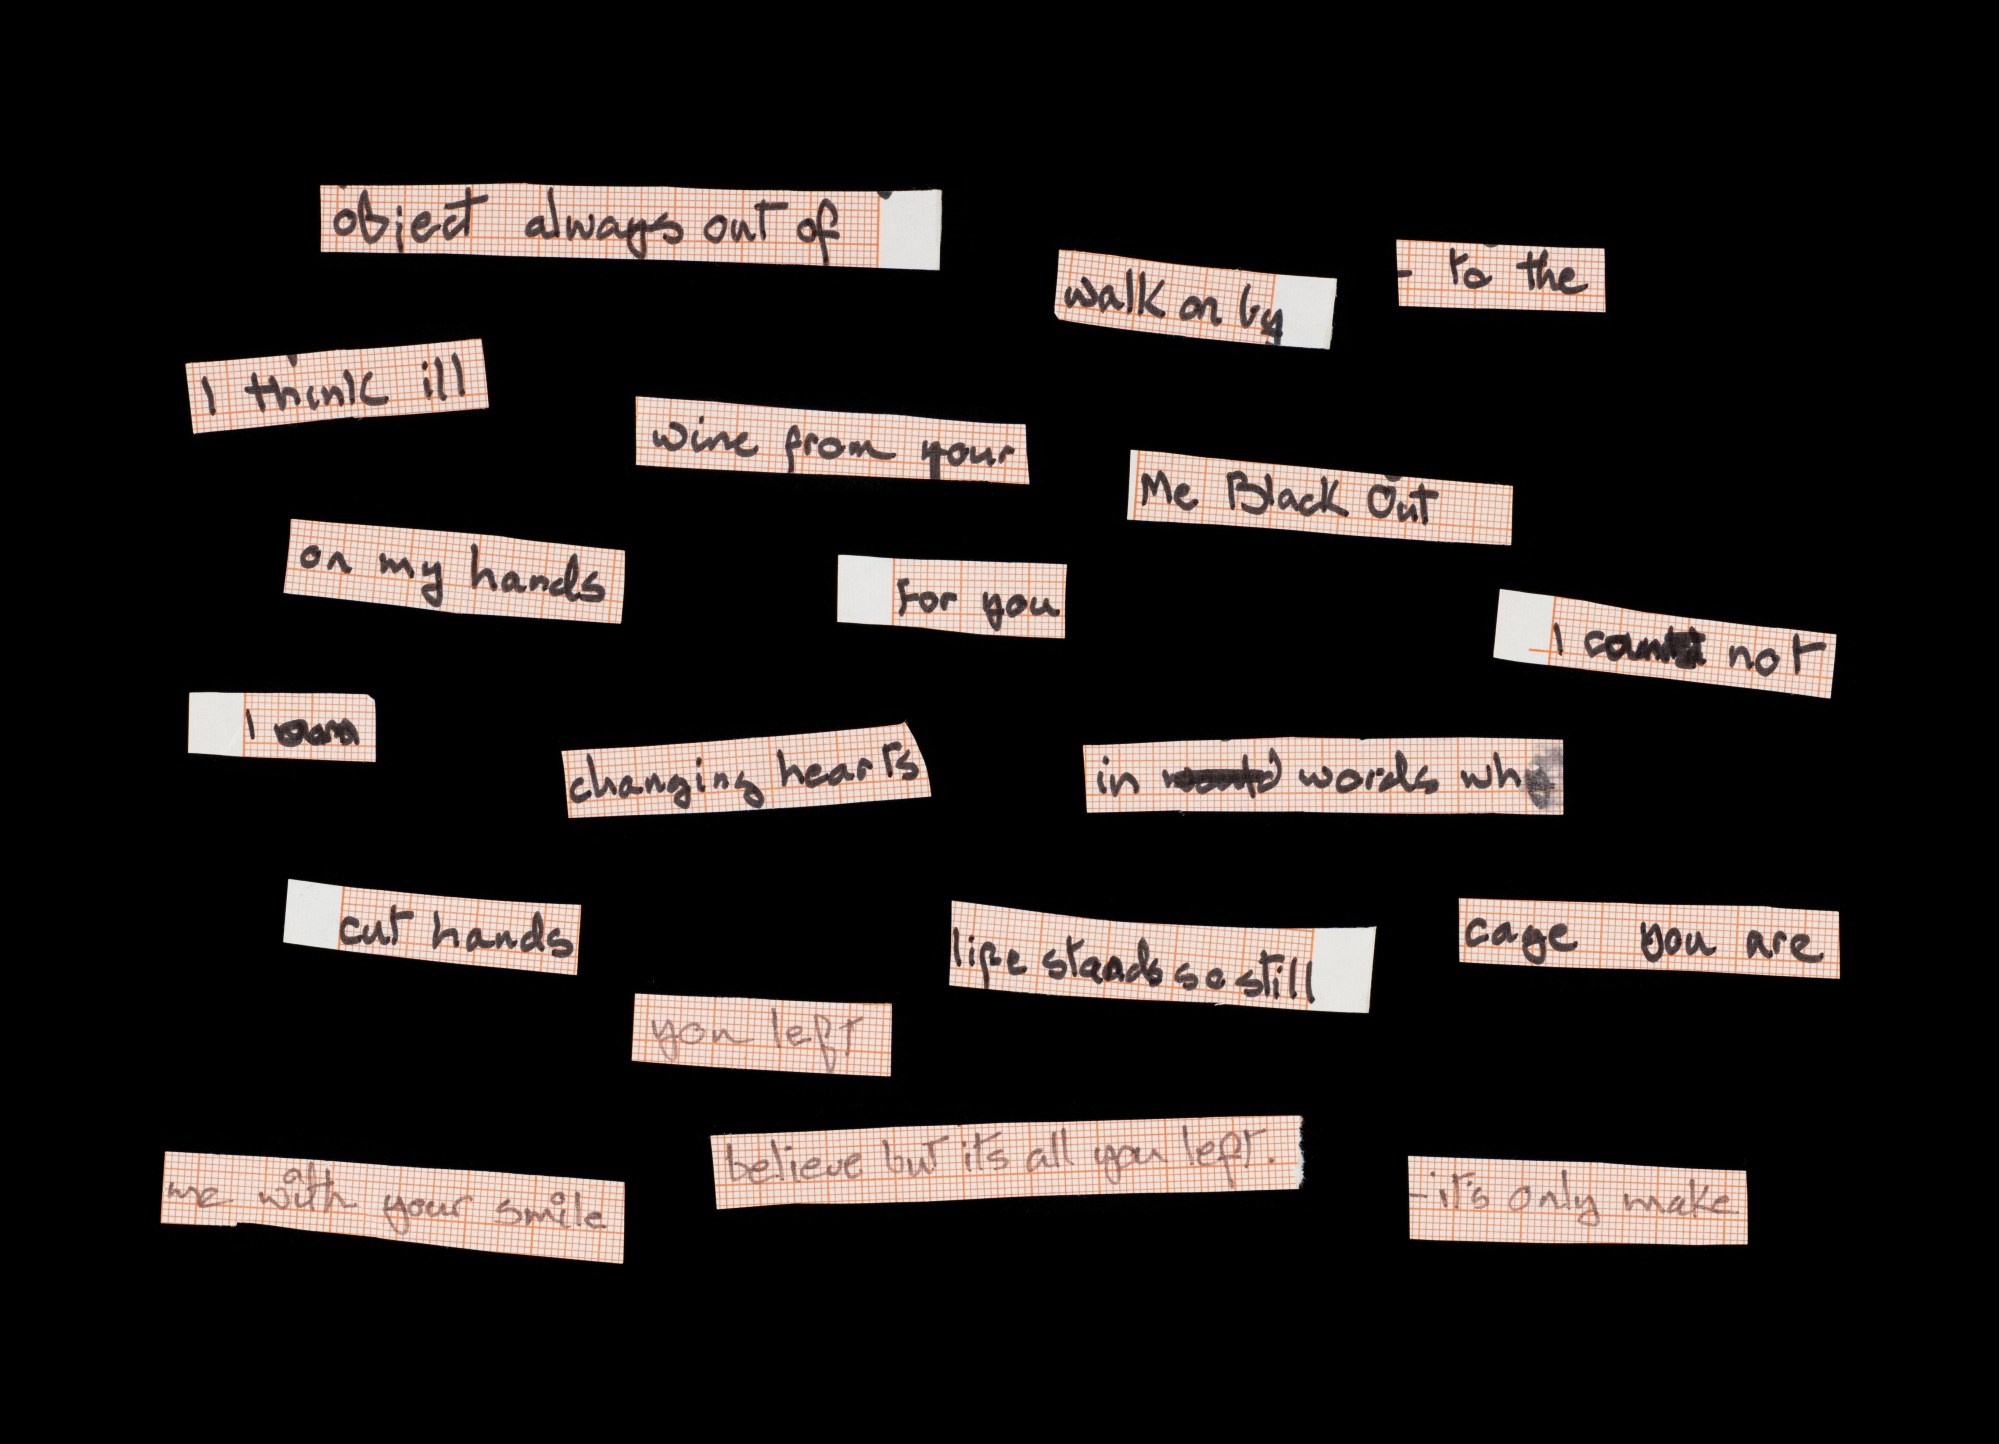 object always out of
walk on by
- to the
I think ill
wine from your
Me Black Out
on my hands
for you
I not
I am
changing hearts
in words wh
cut hands
life stands so still
cage you are
you left
believe but it's all you left.
me with your smile
- it's only make